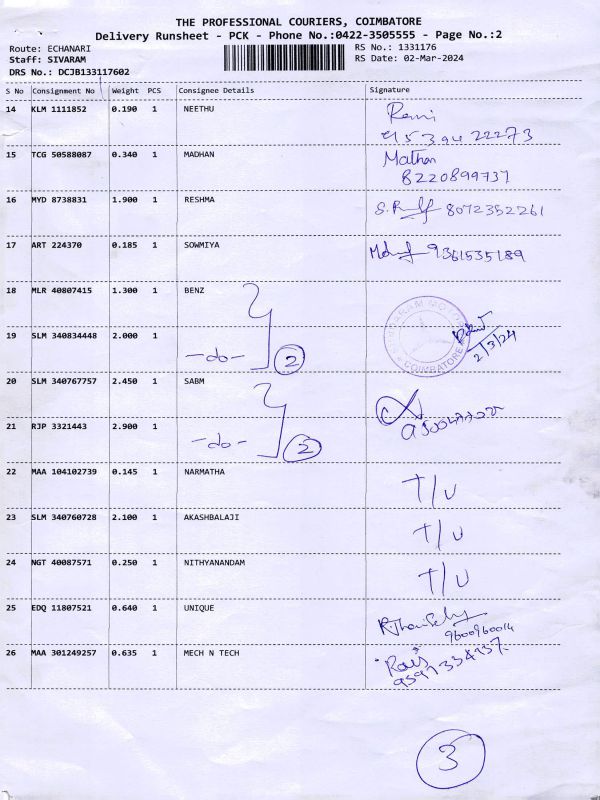 THE PROFESSIONAL COURIERS, COIMBATORE
Delivery Runsheet - PCK - Phone No.:0422-3505555 - Page No.:2
Route: ECHANARI RS No.: 1331176
Staff: SIVARAM RS Date: 02-Mar-2024
DRS No.: DCJB133117602
S No Consignment No Weight PCS Consignee Details Signature
14 KLM 1111852 0.190 1 NEETHU
15 TCG 50588087 0.340 1 MADHAN Mathan
8220899737
16 MYD 8738831 1.900 1 RESHMA 8072352261
17 ART 224370 0.185 1 SOWMIYA 9361535189
18 MLR 40807415 1.300 1 BENZ
COIMBATORE
2/3/24
19 SLM 340834448 2.000 1 -do- 2
20 SLM 340767757 2.450 1 SABM
21 RJP 3321443 2.900 1 -do- 2
22 MAA 104102739 0.145 1 NARMATHA T/U
23 SLM 340760728 2.100 1 AKASHBALAJI T/U
24 NGT 40087571 0.250 1 NITHYANANDAM T/U
25 EDQ 11807521 0.640 1 UNIQUE
9600960014
26 MAA 301249257 0.635 1 MECH N TECH
3